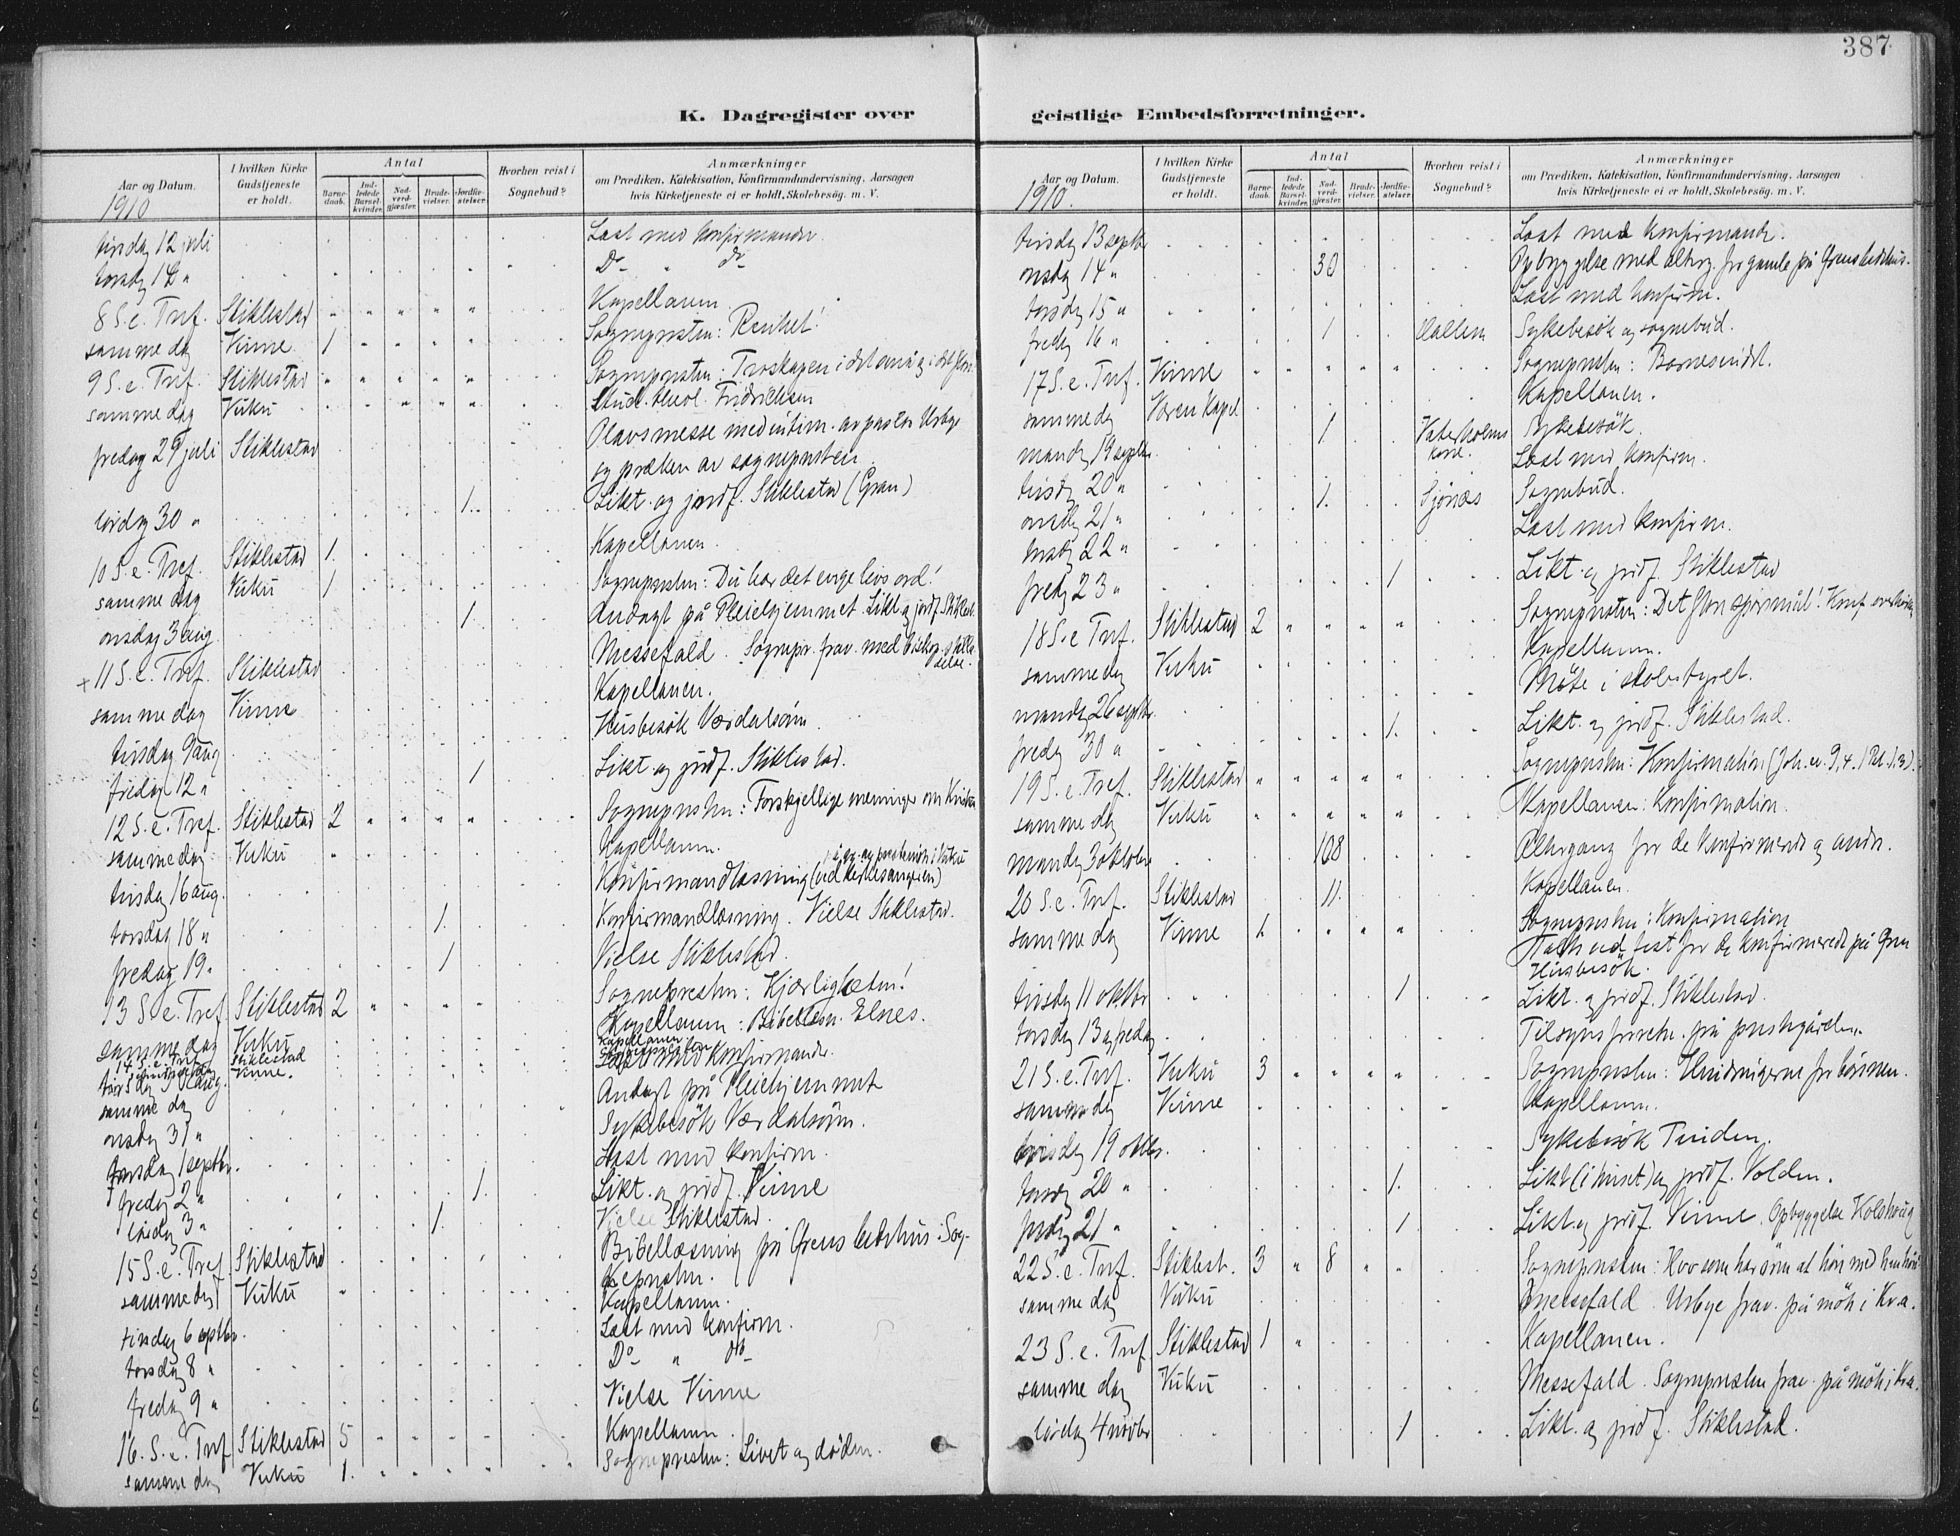 387
K. Dagregister over
Aar og Datum.
I hvilken Kirke Gudstjeneste er holdt.
Antal
Barnedaab.
Indledede Barselkvinder.
Nadverdgjæster.
Brudevielser.
Jordfæstelser.
Hvorhen reist i Sognebud?
Anmærkninger
om Prædiken, Katekisation, Konfirmandundervisning, Aarsagen
hvis Kirketjeneste ei er holdt, Skolebesøg, m. V.
1910
tirsdag 12 juli Læst med konfirmander.
torsdag 14 " Do " do
8 S. e. Tref. Stiklestad " " " " " Kapellanen.
samme dag Vinne 1 " " " " Sogneprsten: Renhet!
9 S. e. Tref. Stiklestad " " " " " Sogneprsten: Troskapen i det små og i det
samme dag Vuku Stud. theol. Fridrichsen
fredag 29 juli Stiklestad Olavsmesse med av pastor Urbye
og præken av sogneprsten.
lørdag 30 " 1 Likt. og jordf. Stiklestad (Gran)
10 S. e. Tref. Stiklestad 1 Kapellanen.
samme dag Vuku 1 Sogneprsten: Du har det evige livs ord!
onsdag 3 aug. 1 Andagt på Pleiehjemmet Likt. og jordf. Stiklest.
+ 11 S. e. Tref. Stiklestad Messefald. Sognepr. frav. med biskop.
samme dag Vinne Kapellanen.
tirsdag 9 aug Husbesøk Værdalsøren
fredag 12 " 1 Likt. og jordf. Stiklestad.
12 S. e. Tref. Stiklestad 2 " " " " Sogneprsten: Forskjellige meninger om Kristus
samme dag Vuku " Kapellanen.
tirsdag 16 aug. Konfirmandlæsning
torsdag 18 " 1 Konfirmandlæsning. Vielse Stiklestad.
fredag 19 " 1 Vielse Stiklestad.
13 S. e. Tref. Stiklestad 2 " " " " Sogneprsten: Kjærligheten!
samme dag Vuku Kapellanen: Elnes.
14 S. e. Tref. Stiklestad Kapellanen
Vinne.
aug. Læst med konfirmander.
samme dag Andagt på Pleiehjemmet
onsdag 31 " Sykebesøk Værdalsøren.
torsdag 1 septbr. Læst med konfirm.
fredag 2 " 1 Likt. og jordf. Vinne
lørdag 3 " 1 Vielse Stiklestad.
15 S. e. Tref. Stiklestad Bibellæsning på Grens bedehus. Sog-
neprsten.
samme dag Vuku Kapellanen.
tirsdag 6 septbr. Læst med konfirm.
torsdag 8 " Do " do
fredag 9 " Vielse Vinne
16. S. e. Tref Stiklestad 5 Kapellanen.
samme dag Vuku 1. Sogneprsten: Livet og døden.
geistlige Embedsforretninger.
Aar og Datum.
I hvilken Kirke Gudstjeneste er holdt.
Antal
Barnedaab.
Indledede Barselkvinder.
Nadverdgjæster.
Brudevielser.
Jordfæstelser.
Hvorhen reist i Sognebud?
Anmærkninger
om Prædiken, Katekisation, Konfirmandundervisning, Aarsagen
hvis Kirketjeneste ei er holdt, Skolebesøg, m. V.
1910.
tirsdag 13 septbr Læst med konfirmande.
onsdag 14 " 30 Opbyggelse med alterg. for gamle på Grens bedehus.
torsdag 15 " Læst med konfirm.
fredag 16 " 1 Sykebesøk og sognebud.
17 S. e. Tref. Vinne " " " " " Sogneprsten: Barnesindet.
samme dag Væren Kapel Kapellanen.
mandag 19 septbr. 1 Sykebesøk.
tirsdag 20 " Læst med konfirm.
onsdag 21 " 1. Sjønæs Sognebud.
torsdag 22 " Læst med konfirm.
fredag 23 " 1 Likt. og jordf. Stiklestad
18 S. e. Tref. Stiklestad 2 " " " " Sogneprsten: Det spørsmål!
samme dag Vuku Kapellanen.
mandag 26 septbr. Møte i skolestyret.
fredag 30 " 1. Likt. og jordf. Stiklestad.
19 S. e. Tref. Stiklestad " " " " " Sogneprsten: Konfirmation
samme dag Vuku " " " " " Kapellanen: Konfirmation.
mandag 3 oktober 108 Altergang for de konfirmerede og andre.
20 S. e. Tref. Stiklestad 11. Kapellanen.
samme dag Vinne 1 " " " " Sogneprsten: Konfirmation
fest for de konfirmerede på
Husbesøk.
tirsdag 11 oktbr 1 Likt. og jordf. Stiklestad.
torsdag 13 og fredag Tilsynsforretn. på prestegården.
21 S. e. Tref. Vuku 3 " " " " Sogneprsten:
samme dag Vinne Kapellanen.
onsdag 19 oktbr. Sykebesøk Tinden.
torsdag 20 " 1. Likt (i huset) og jordf. Volden.
fredag 21 " 1 Likt. og jordf. Vinne. Opbyggelse
22 S. e. Tref. Stiklest. 3 " 8 " " Sogneprsten: Hvo som har øren at høre med han høre
samme dag Vuku Messefald. Urbye frav. på møte i Kr.a.
23 S. e. Tref Stiklestad 1 " Kapellanen.
samme dag Vuku Messefald. Sogneprsten frav. på møte i Kr.a.
lørdag 4 novbr 1 Likt. og jordf. Stiklestad.